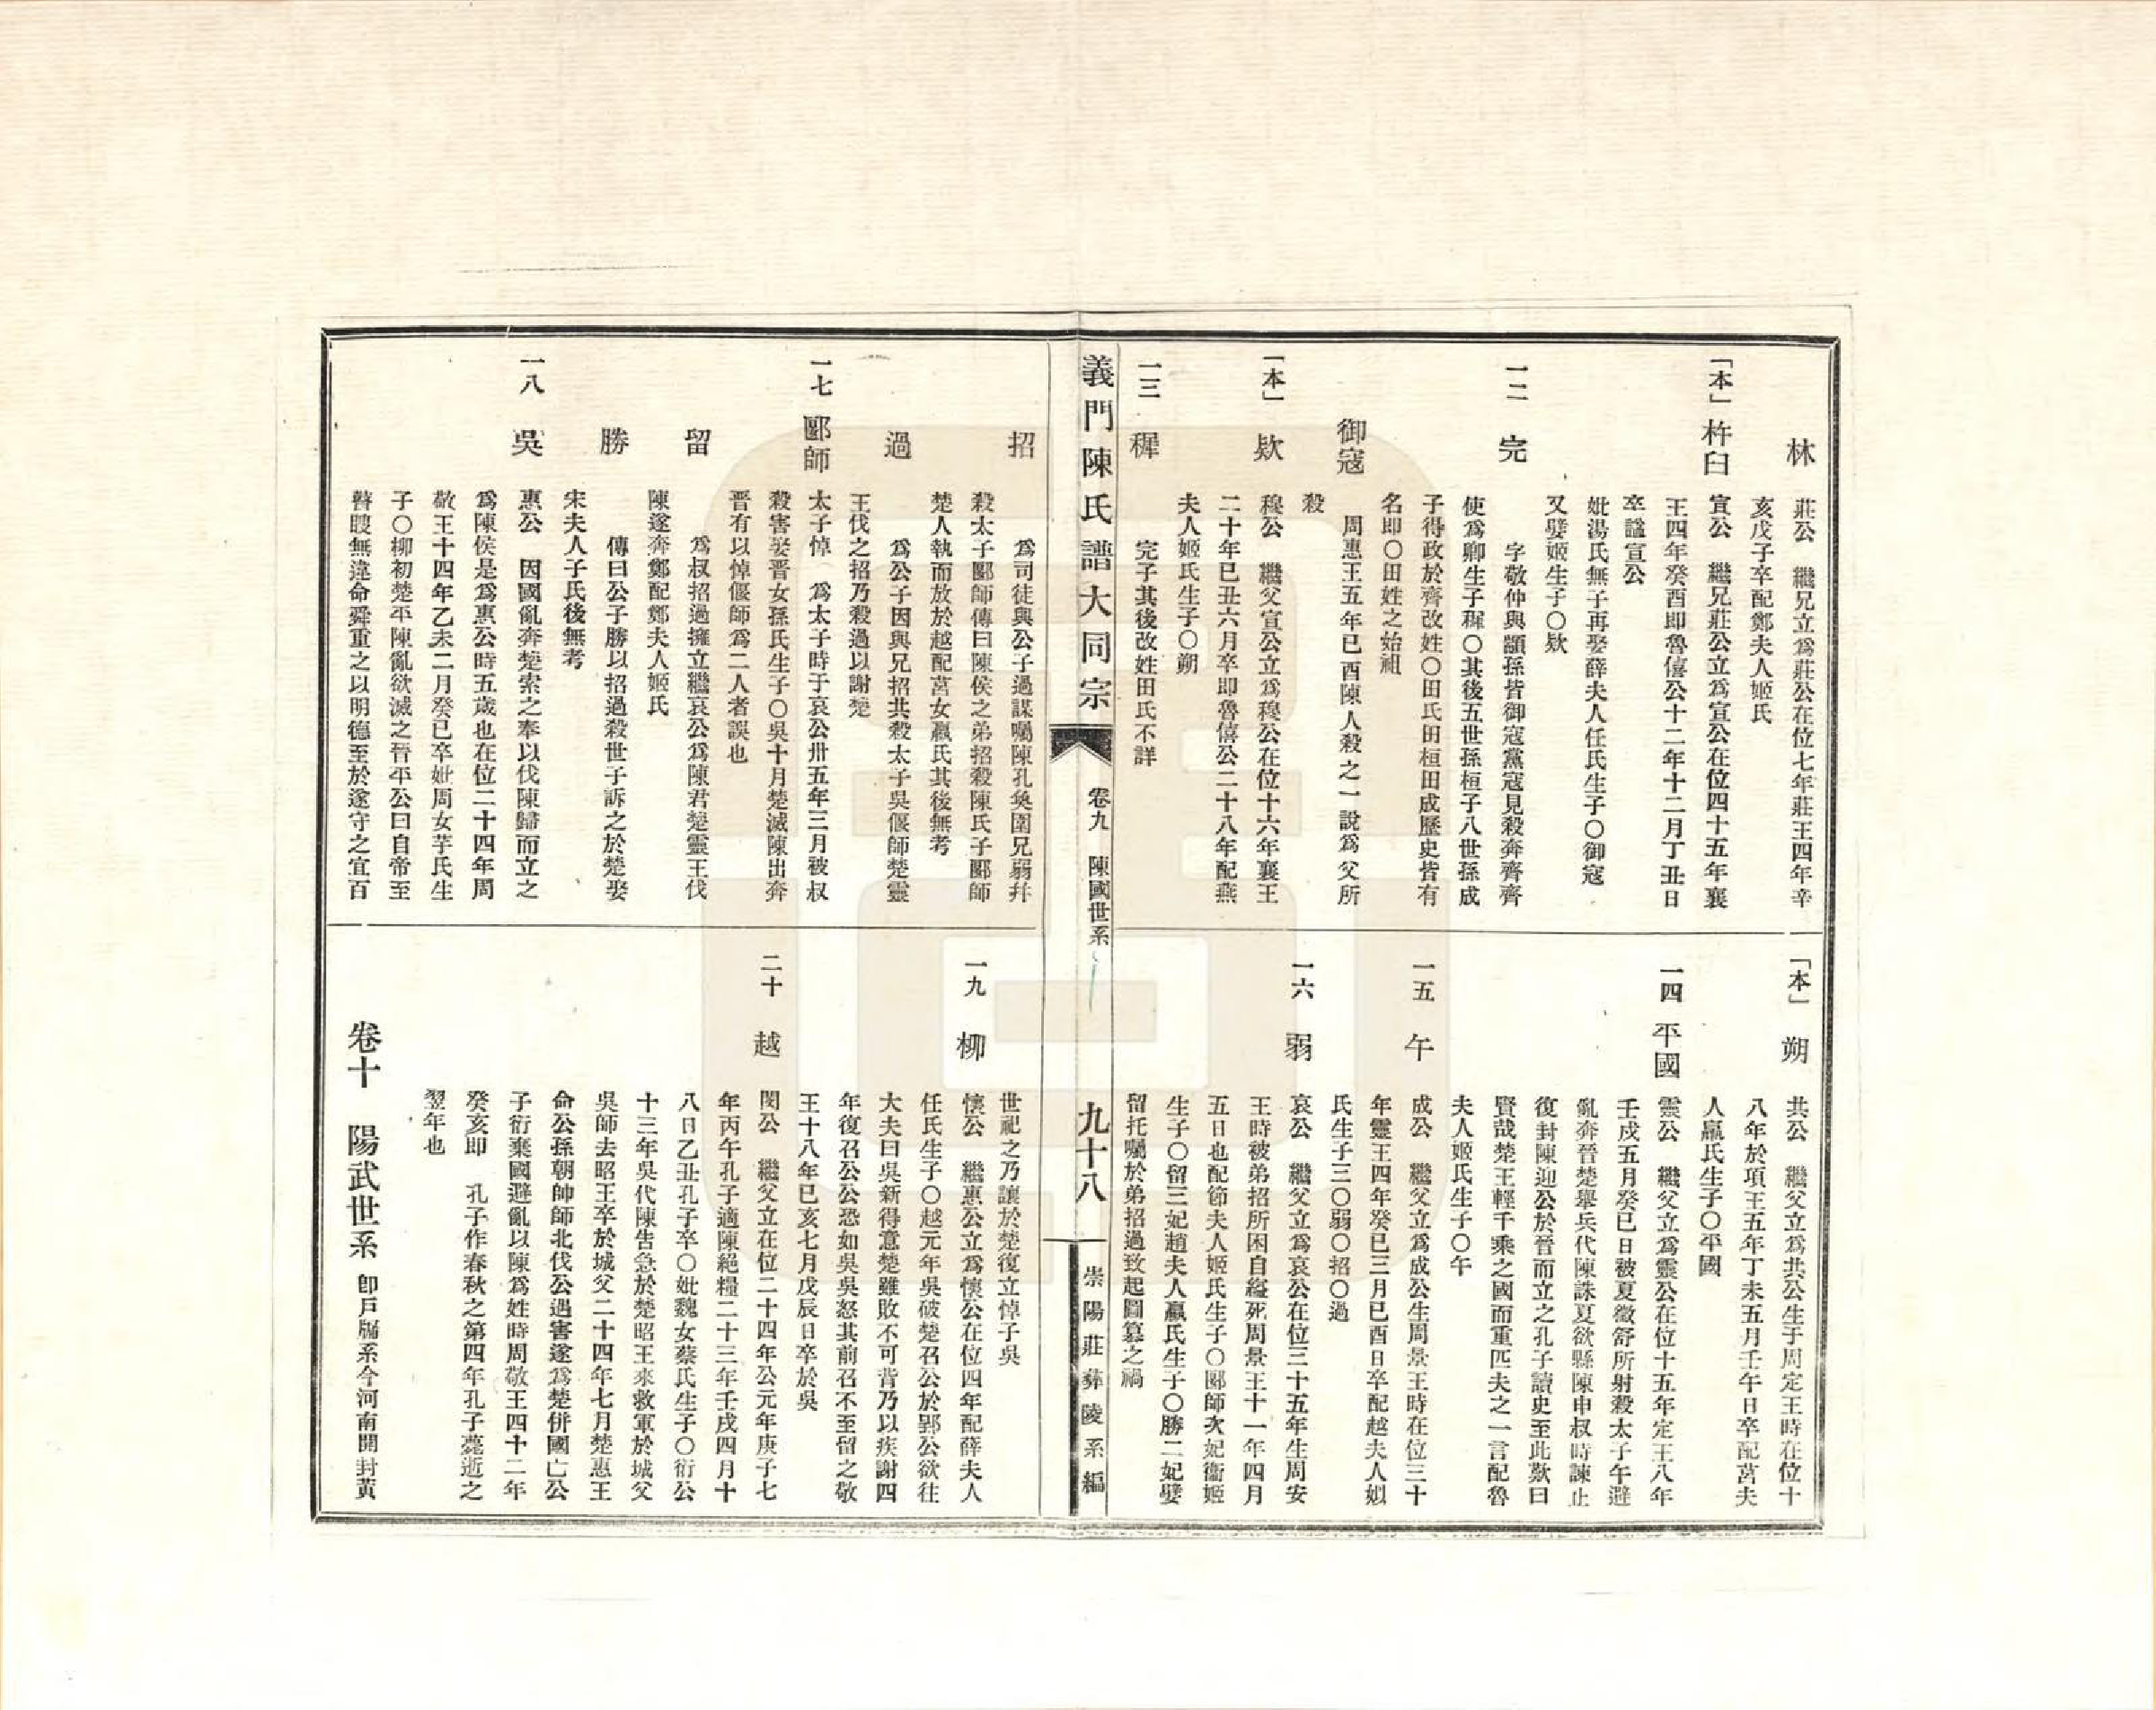 林　莊公　繼兄立爲莊公在位七年莊王四年辛
亥戊子卒配鄭夫人姬氏
「本」杵臼　宣公　繼兄莊公立爲宣公在位四十五年襄
王四年癸酉即魯僖公十二年十二月丁丑日
卒諡宣公
妣湯氏無子再娶薛夫人任氏生子〇御寇
又嬖姬生子〇欵
一二　完　字敬仲與顓孫皆御寇黨寇見殺奔齊齊
使爲卿生子穉〇其後五世孫桓子八世孫成
子得政於齊改姓〇田氏田桓田成歷史皆有
名即〇田姓之始祖
御寇　周惠王五年已酉陳人殺之一說爲父所
殺
「本」欵　穆公　繼父宣公立爲穆公在位十六年襄王
二十年已丑六月卒即魯僖公二十八年配燕
夫人姬氏生子〇朔
一三　穉　完子其後改姓田氏不詳
「本」朔　共公　繼父立爲共公生于周定王時在位十
八年於項王五年丁未五月壬午日卒配莒夫
人羸氏生子〇平國
一四　平國　靈公　繼父立爲靈公在位十五年定王八年
壬戌五月癸巳日被夏徵舒所射殺太子午避
亂奔晉楚舉兵代陳誅夏欲縣陳申叔時諫止
復封陳迎公於晉而立之孔子讀史至此歎曰
賢哉楚王輕千乘之國而重匹夫之一言配魯
夫人姬氏生子〇午
一五　午　成公　繼父立爲成公生周景王時在位三十
年靈王四年癸巳三月已酉日卒配越夫人姒
氏生子三〇弱〇招〇過
一六　弱　哀公　繼父立爲哀公在位三十五年生周安
王時被弟招所困自縊死周景王十一年四月
五日也配節夫人姬氏生子〇郾師次妃衞姬
生子〇留三妃趙夫人羸氏生子〇勝二妃嬖
留托囑於弟招過致起圖篡之禍
義門陳氏譜大同宗　卷九　陳國世系　九十八　崇陽莊葬陵系編
招　爲司徒與公子過謀囑陳孔奐圍兄弱幷
殺太子郾師傳曰陳侯之弟招殺陳氏子郾師
楚人執而放於越配莒女羸氏其後無考
過　爲公子因與兄招共殺太子吳偃師楚靈
王伐之招乃殺過以謝楚
一七　郾師　太子悼　爲太子時于哀公卅五年三月被叔
殺害娶晉女孫氏生子〇吳十月楚滅陳出奔
晋有以悼偃師爲二人者誤也
留　爲叔招過擁立繼哀公爲陳君楚靈王伐
陳遂奔鄭配鄭夫人姬氏
勝　傳曰公子勝以招過殺世子訴之於楚娶
宋夫人子氏後無考
一八　吳　惠公　因國亂奔楚索之奉以伐陳歸而立之
爲陳侯是爲惠公時五歲也在位二十四年周
敬王十四年乙未二月癸已卒妣周女芋氏生
子〇柳初楚平陳亂欲滅之晉平公曰自帝至
瞽瞍無違命舜重之以明德至於遂守之宜百
世祀之乃讓於楚復立悼子吳
一九　柳　懷公　繼惠公立爲懷公在位四年配薛夫人
任氏生子〇越元年吳破楚召公於郢公欲往
大夫曰吳新得意楚雖敗不可背乃以疾謝四
年復召公公恐如吳吳怒其前召不至留之敬
王十八年已亥七月戊辰日卒於吳
二十　越　閔公　繼父立在位二十四年公元年庚子七
年丙午孔子適陳絕糧二十三年壬戌四月十
八日乙丑孔子卒〇妣魏女蔡氏生子〇衍公
十三年吳代陳告急於楚昭王來救軍於城父
吳師去昭王卒於城父二十四年七月楚惠王
命公孫朝帥師北伐公遇害遂爲楚併國亡公
子衍棄國避亂以陳爲姓時周敬王四十二年
癸亥即　孔子作春秋之第四年孔子薨逝之
翌年也
卷十　陽武世系　卽戶牖系今河南開封黃